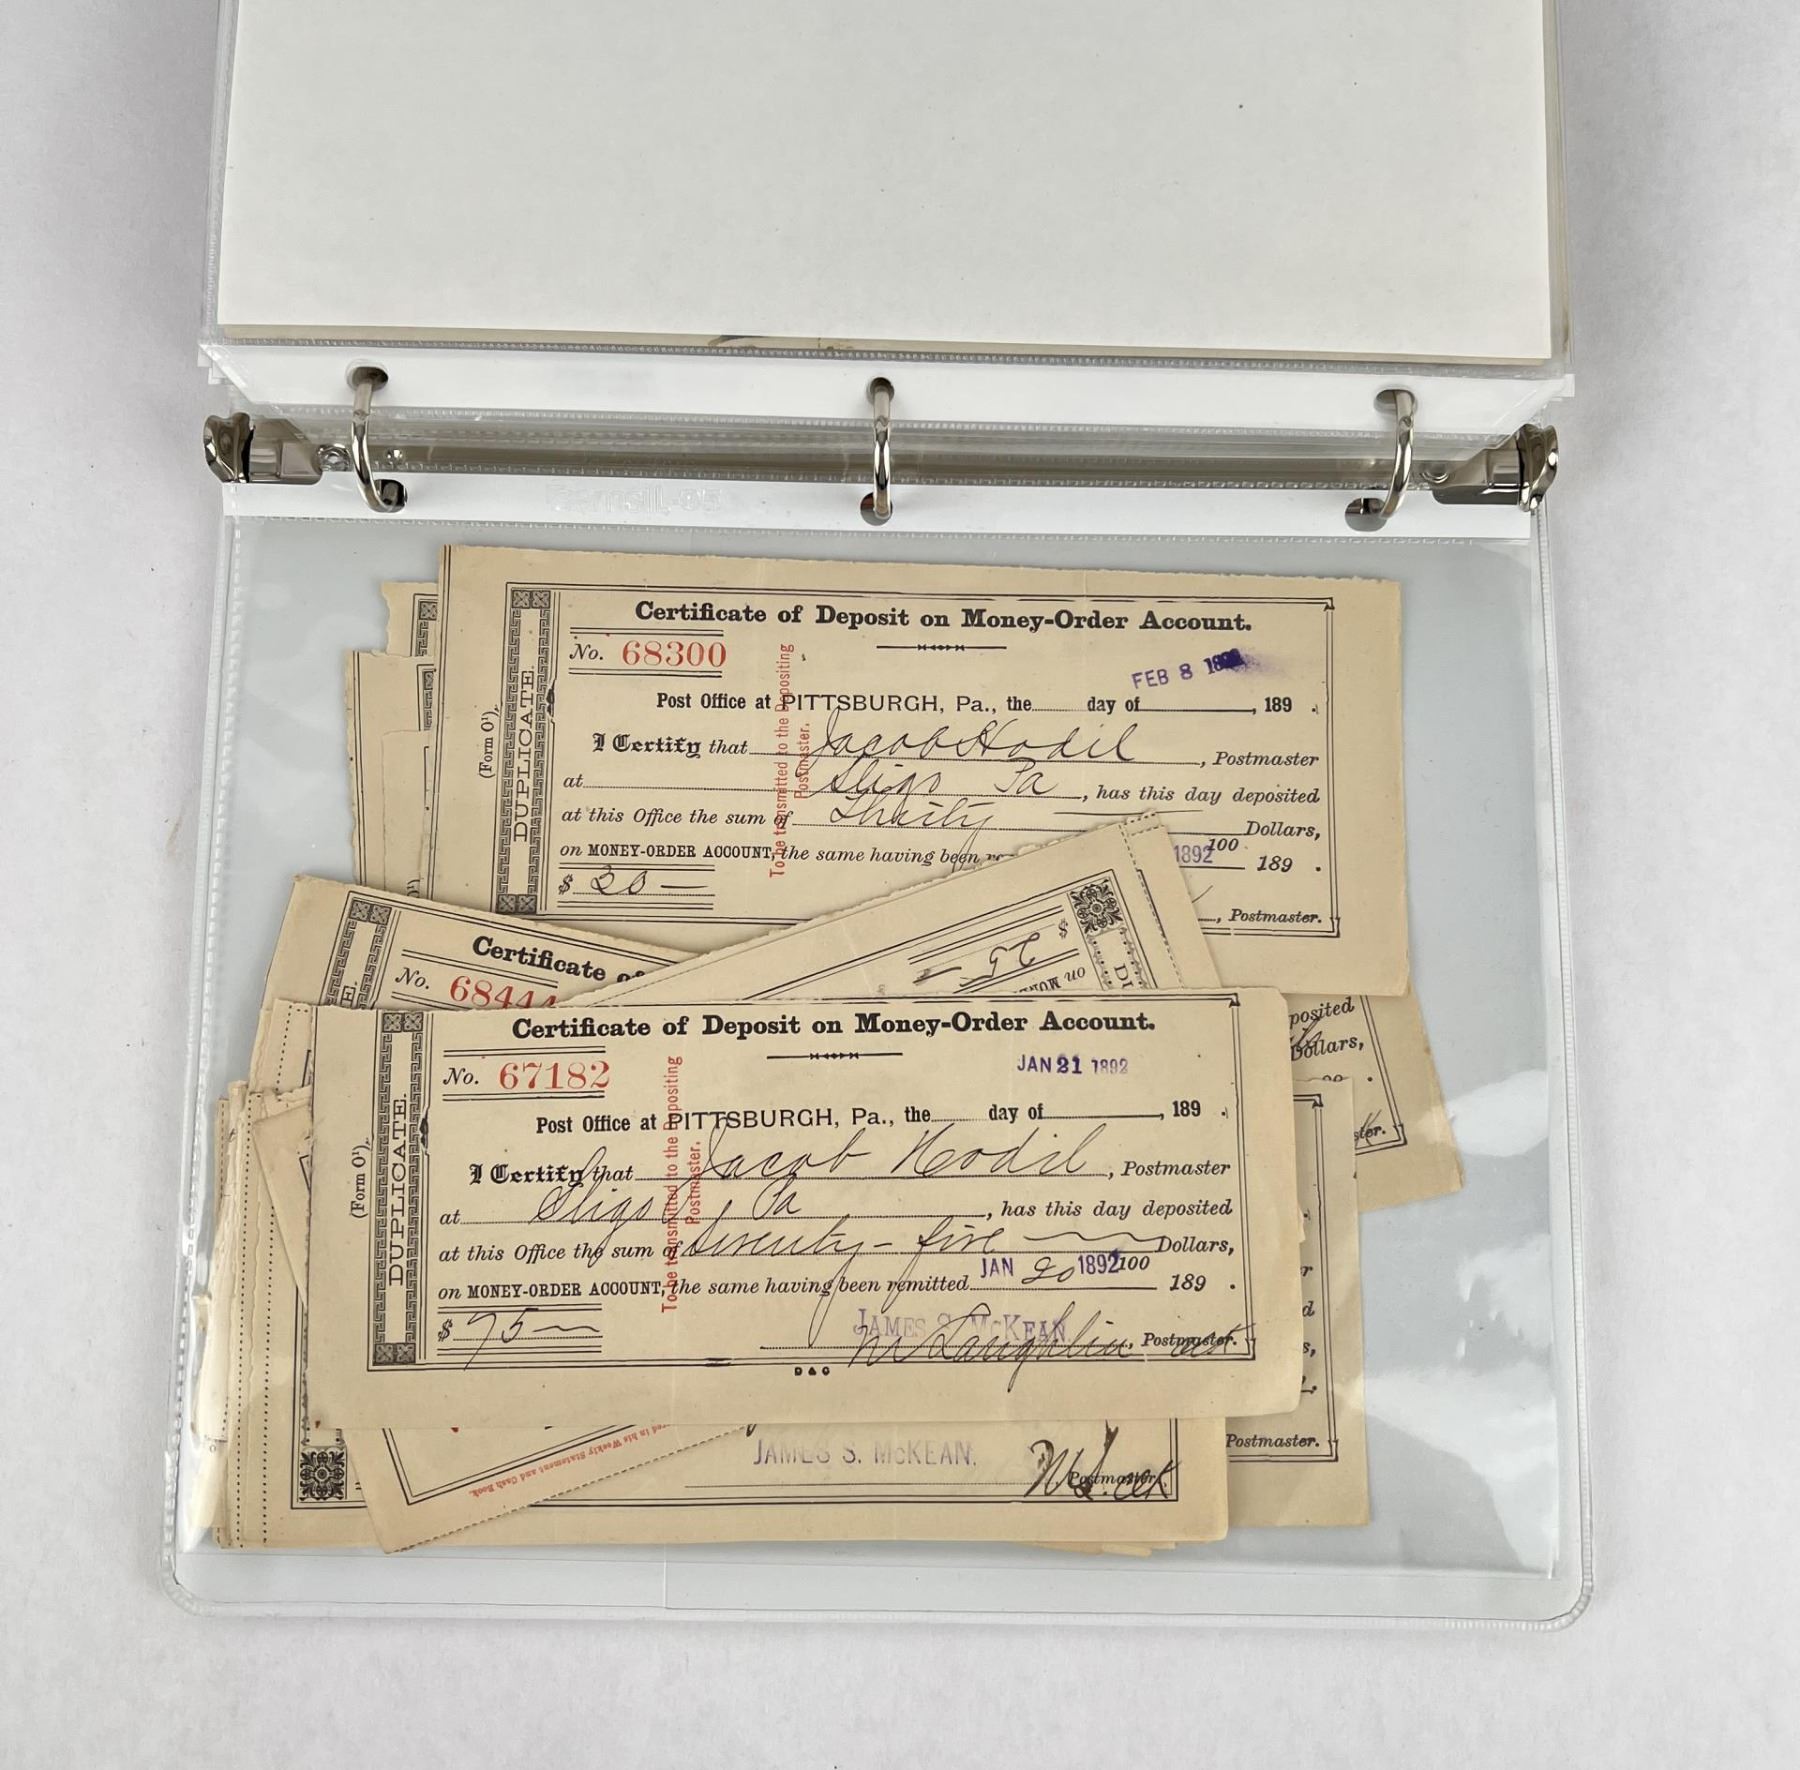 Certificate of Deposit on Money-Order Account.
No. 68300
FEB 8
Post Office at PITTSBURGH, Pa., the day of , 189 .
(Form O¹).
DUPLICATE.
To be transmitted to the Depositing
Postmaster.
I Certify that Jacob Hodil , Postmaster
at Sligo Pa , has this day deposited
at this Office the sum of Thirty Dollars,
100
on MONEY-ORDER ACCOUNT, the same having been 1892 189 .
$ 30 —
, Postmaster.
$ 25 —
on
Certificate of
No. 68444
posited
Dollars,
Certificate of Deposit on Money-Order Account.
No. 67182
JAN 21 1892
Post Office at PITTSBURGH, Pa., the day of , 189 .
(Form O¹).
DUPLICATE.
To be transmitted to the Depositing
Postmaster.
I Certify that Jacob Hodil , Postmaster
at Sligo, Pa , has this day deposited
at this Office the sum of Seventy-five Dollars,
100
on MONEY-ORDER ACCOUNT, the same having been remitted JAN 20 1892 189 .
$ 75 —
JAMES S. McKEAN.
McLaughlin , Postmaster.
D & C
in his Weekly Statement and Cash Book.
JAMES S. McKEAN.
Postmaster.
Postmaster.